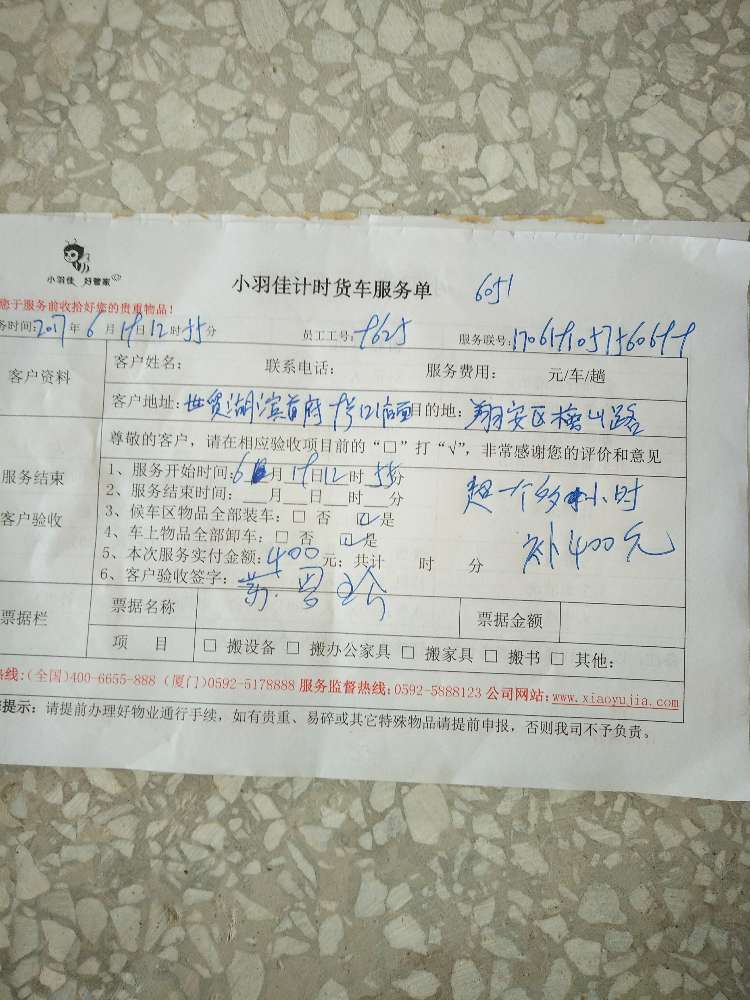 小羽佳 好管家
小羽佳计时货车服务单 6051
您于服务前收拾好您的贵重物品！
务时间:2017年6月19日12时55分 员工工号:9625 服务联号:
客户资料
客户姓名: 联系电话: 服务费用: 元/车/趟
客户地址:世贸湖滨首府 目的地:翔安区 山路
尊敬的客户，请在相应验收项目前的“□”打“√”，非常感谢您的评价和意见
服务结束
客户验收
1、服务开始时间:6月19日12时55分
2、服务结束时间: 月 日 时 分
3、候车区物品全部装车: □ 否 ☑是
4、车上物品全部卸车: □ 否 ☑是
5、本次服务实付金额:400元; 共计 时 分
6、客户验收签字:
超一个多小时
补400元
票据栏
票据名称 票据金额
项 目 □ 搬设备 □ 搬办公家具 □ 搬家具 □ 搬书 □ 其他:
热线:(全国)400-6655-888 (厦门)0592-5178888 服务监督热线:0592-5888123 公司网站:www.xiaoyujia.com
提示: 请提前办理好物业通行手续，如有贵重、易碎或其它特殊物品请提前申报，否则我司不予负责。